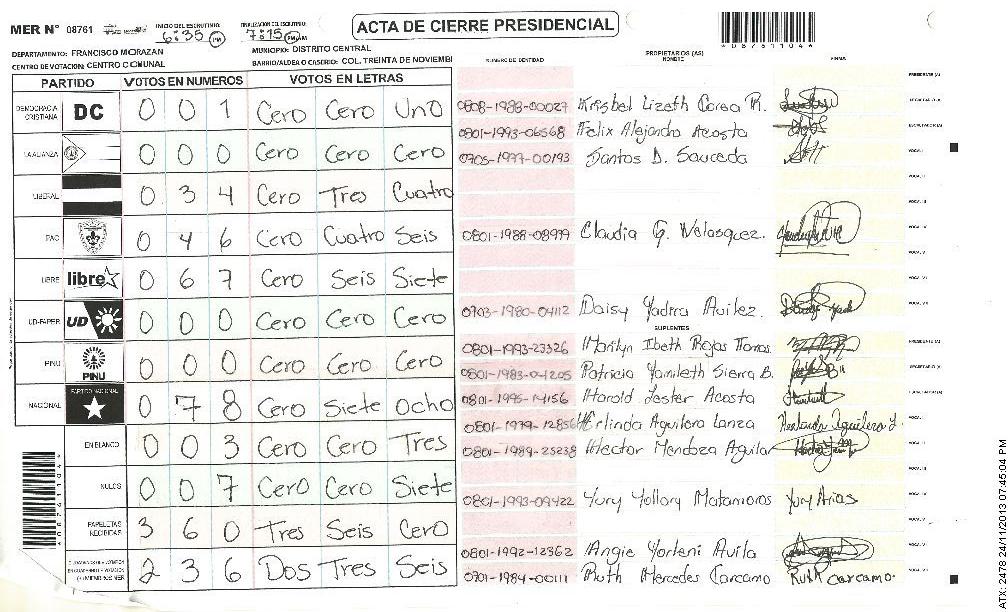 MER N° 08761
INICIO DEL ESCRUTINIO: 6:35 PM
FINALIZACION DEL ESCRUTINIO: 7:15 PM AM
ACTA DE CIERRE PRESIDENCIAL
*08761104*
DEPARTAMENTO: FRANCISCO MORAZAN
MUNICIPIO: DISTRITO CENTRAL
CENTRO DE VOTACION: CENTRO COMUNAL
BARRIO/ALDEA O CASERIO: COL. TREINTA DE NOVIEMB
NUMERO DE IDENTIDAD
PROPIETARIOS (AS)
NOMBRE
FIRMA
PARTIDO VOTOS EN NUMEROS VOTOS EN LETRAS
DEMOCRACIA CRISTIANA DC 0 0 1 Cero Cero Uno
LA ALIANZA 0 0 0 Cero Cero Cero
LIBERAL 0 3 4 Cero Tres Cuatro
PAC 0 4 6 Cero Cuatro Seis
LIBRE libre 0 6 7 Cero Seis Siete
UD-FAPER UD 0 0 0 Cero Cero Cero
PINU PINU 0 0 0 Cero Cero Cero
NACIONAL PARTIDO NACIONAL 0 7 8 Cero Siete Ocho
EN BLANCO 0 0 3 Cero Cero Tres
NULOS 0 0 7 Cero Cero Siete
PAPELETAS RECIBIDAS 3 6 0 Tres Seis Cero
2 3 6 Dos Tres Seis
0808-1988-00027 Krisbel Lizeth Corea R.
0801-1993-06568 Felix Alejandro Acosta
0705-1977-00193 Santos D. Sauceda
0801-1988-08999 Claudia G. Velasquez.
0703-1980-04112 Daisy Yadira Avilez.
SUPLENTES
0801-1993-23326 Marilyn Ibeth Rojas
0801-1983-04205 Patricia Yamileth Sierra B.
0801-1995-14156 Harold Lester Acosta
0801-1979-12856 Herlinda Aguilera Lanza Herlinda Aguilera L.
0801-1989-25238 Hector Mendoza Aguilar
0801-1993-09422 Yury Yollary Matamoros Yury Arias
0801-1992-12362 Angie Yorleni Avila
0701-1984-00111 Ruth Mercedes Carcamo Ruth Carcamo.
*08761104*
ATX: 2478 24/11/2013 07:45:04 PM